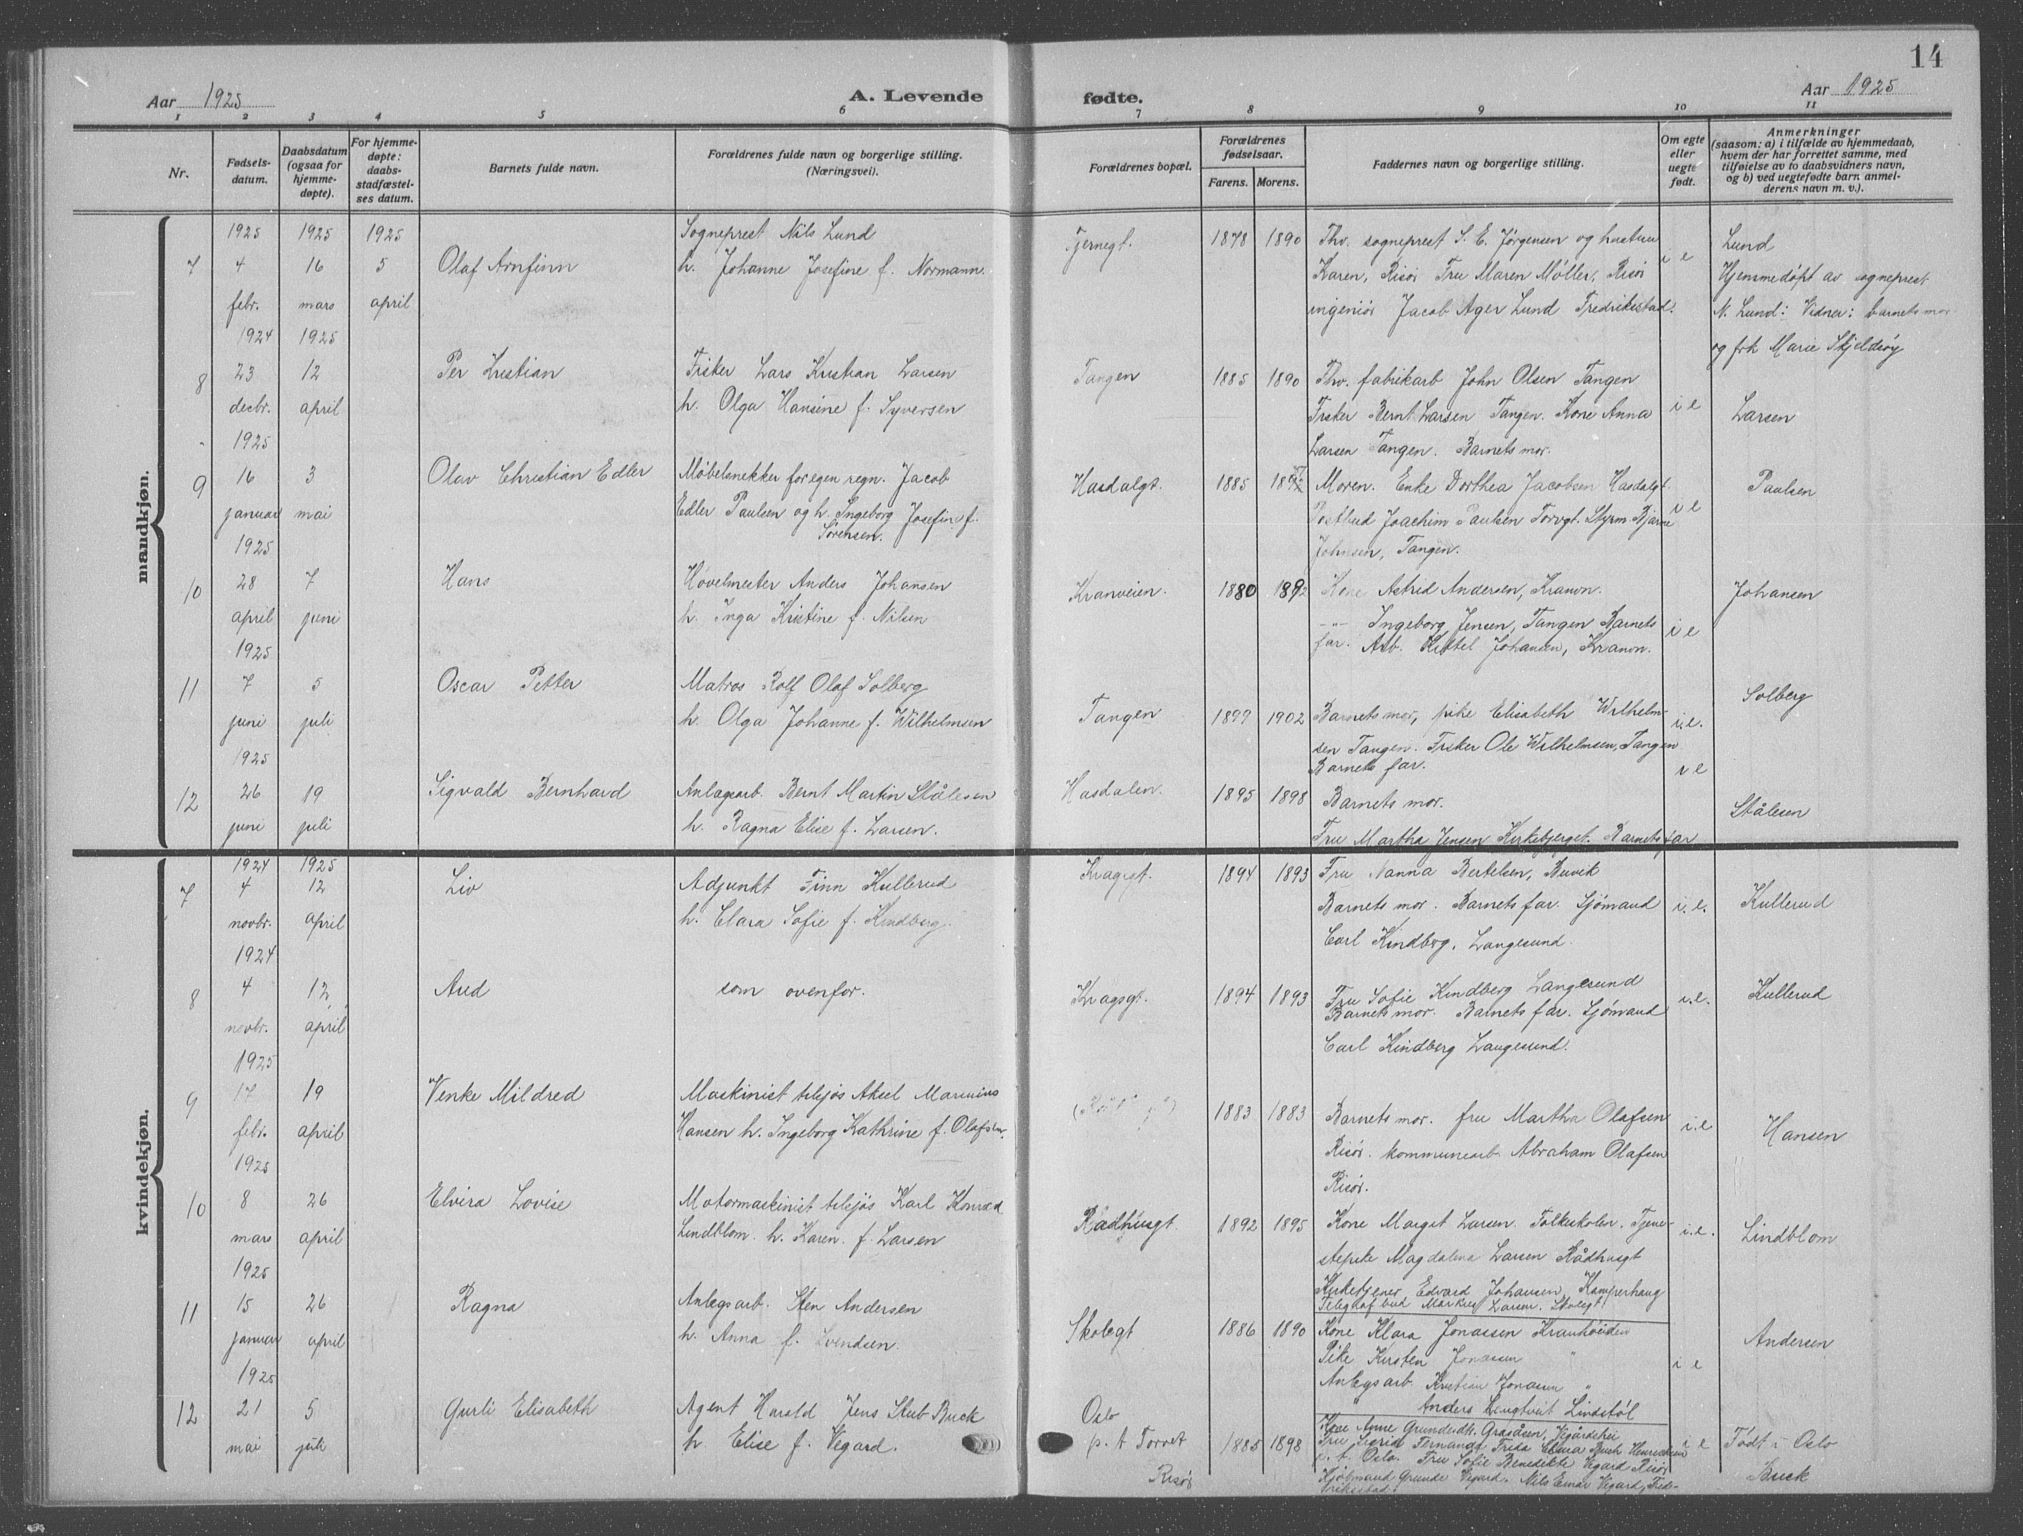 14
Aar 1925
A. Levende
fødte.
Aar 1925
1 2 3 4 5 6 7 8 9 10 11
Nr.
Fødsels-
datum.
Daabsdatum
(ogsaa for
hjemme-
døpte).
For hjemme-
døpte:
daabs-
stadfæstel-
ses datum.
Barnets fulde navn.
Forældrenes fulde navn og borgerlige stilling.
(Næringsvei).
Forældrenes bopæl.
Forældrenes
fødselsaar.
Farens. Morens.
Faddernes navn og borgerlige stilling.
Om egte
eller
uegte
født.
Anmerkninger
(saasom: a) i tilfælde av hjemmedaab,
hvem der har forrettet samme, med
tilføielse av to daabsvidners navn,
og b) ved uegtefødte barn anmel-
derens navn m. v.).
mandkjøn.
7
1925
4
febr.
1925
16
mars
1925
5
april
Olaf Arnfinn
Sogneprest Nils Lund
h. Johanne Josefine f. Normann.
Tjernegt.
1878 1890
Thv. sogneprest S. E. Jørgensen og hustru
Karen, Risör Fru Maren Møller, Risör
ingeniör Jacob Ager Lund Fredrikstad.
i e
Lund
Hjemmedöpt av sogneprest
N. Lund: Vidner: barnets mor
og frk Marie Skjeldsøy
8
1924
23
decbr.
1925
12
april
Per Kristian
Fisker Lars Kristian Larsen
h. Olga Hansine f. Syversen
Tangen
1885 1890
Thv. fabrikarb John Olsen Tangen
Fisker Bernt Larsen Tangen. Kone Anna
Larsen Tangen. Barnets mor.
i e
Larsen
9
1925
16
januar
3
mai
Olav Christian Edler
Møbelsnekker for egen regn. Jacob
Edler Paulsen og h. Ingeborg Josefine f.
Sörensen.
Hasdalgt.
1885
Moren. Enke Dorthea Jacobsen Hasdalgt.
Postbud Joachim Paulsen Torvgt. Styrm Bjarne
Johnsen, Tangen.
i e
Paulsen
10
1925
28
april
7
juni
Hans
Hovelmester Anders Johansen
h. Inga Kristine f. Nilsen
Kranveien.
1880 1892
Kone Astrid Andersen, Kranv.
-"- Ingeborg Jensen, Tangen Barnets
far. Arb. Kittel Johansen, Kranv.
i e
Johansen
11
1925
7
juni
5
juli
Oscar Petter
Matros Rolf Olaf Solberg
h. Olga Johanne f. Wilhelmsen
Tangen
1899 1902
Barnets mor, pike Elisabeth Wilhelm-
sen Tangen. Fisker Ole Wilhelmsen, Tangen
Barnets far.
i.e.
Solberg
12
1925
26
juni
19
juli
Sigvald Bernhard
Anlægsarb. Bernt Martin Stålesen
h. Ragna Elise f. Larsen.
Hasdalen.
1895 1898
Barnets mor.
Fru Martha Jensen Kirkebjerget. Barnets far
i e
Stålesen
kvindekjøn.
7
1924
4
novbr.
1925
12
april
Liv
Adjunkt Finn Kullerud
h. Clara Sofie f. Kindberg.
Kragsgt.
1894 1893
Fru Nanna Bertelsen, Buvik
Barnets mor. Barnets far. Sjömand
Carl Kindbrg, Langesund.
i.e.
Kullerud
8
1924
4
novbr.
12
april
Aud
som ovenfor.
Kragsgt.
1894 1893
Fru Sofie Kindberg Langesund
Barnets mor. Barnets far. Sjömand
Carl Kindberg Langesund.
i.e.
Kullerud
9
1925
17
febr.
19
april
Venke Mildred
Maskinist tilsjøs Aksel Marinius
Hansen h. Ingeborg Kathrine f. Olafsen.
1883 1883
Barnets mor. fru Martha Olafsen
Risör. kommunearb. Abraham Olafsen
Risör.
i.e
Hansen
10
1925
8
mars
26
april
Elvira Lovise
Motormaskinist tilsjøs Karl Konrad
Lindblom. h. Karen. f. Larsen
Rådhusgt.
1892 1895
Kone Margit Larsen. Folkeskolen. Tjene-
stepike Magdalena Larsen Rådhusgt
Kirketjener Edvard Johansen, Kamperhaug
Telegrafbud Markus Larsen. Skolegt.
i.e.
Lindblom
11
1925
15
januar
26
april
Ragna
Anlægsarb. Sten Andersen
h. Anna f. Svendsen.
Skolegt
1886 1890
Kone Klara Jonassen Kranhöiden
Pike Kirsten Jonassen "
Anlægsarb Kristian Jonassen "
Anders Lindstøl
i e
Andersen
12
1925
21
mai
5
juli
Gurli Elisabeth
Agent Harald Jens Skub Buck
h. Elise f. Vegard.
Oslo
p. t Torvet
Risör
1885 1898
Fru Sigrid
p. t. Oslo. Fru Sofie Benedikte Vegard Risör
Kjöbmand Grunde Vegard. Nils Einar Vegard, Fred-
rikstad.
i e
Født i Oslo
Buck